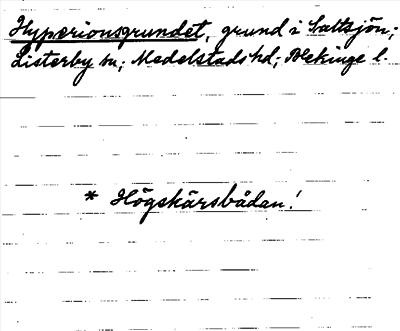 Hyperionsgrundet, grund i Saltsjön;
Listerby sn; Medelstads hd; Blekinge l.
* Högskärsbådan!